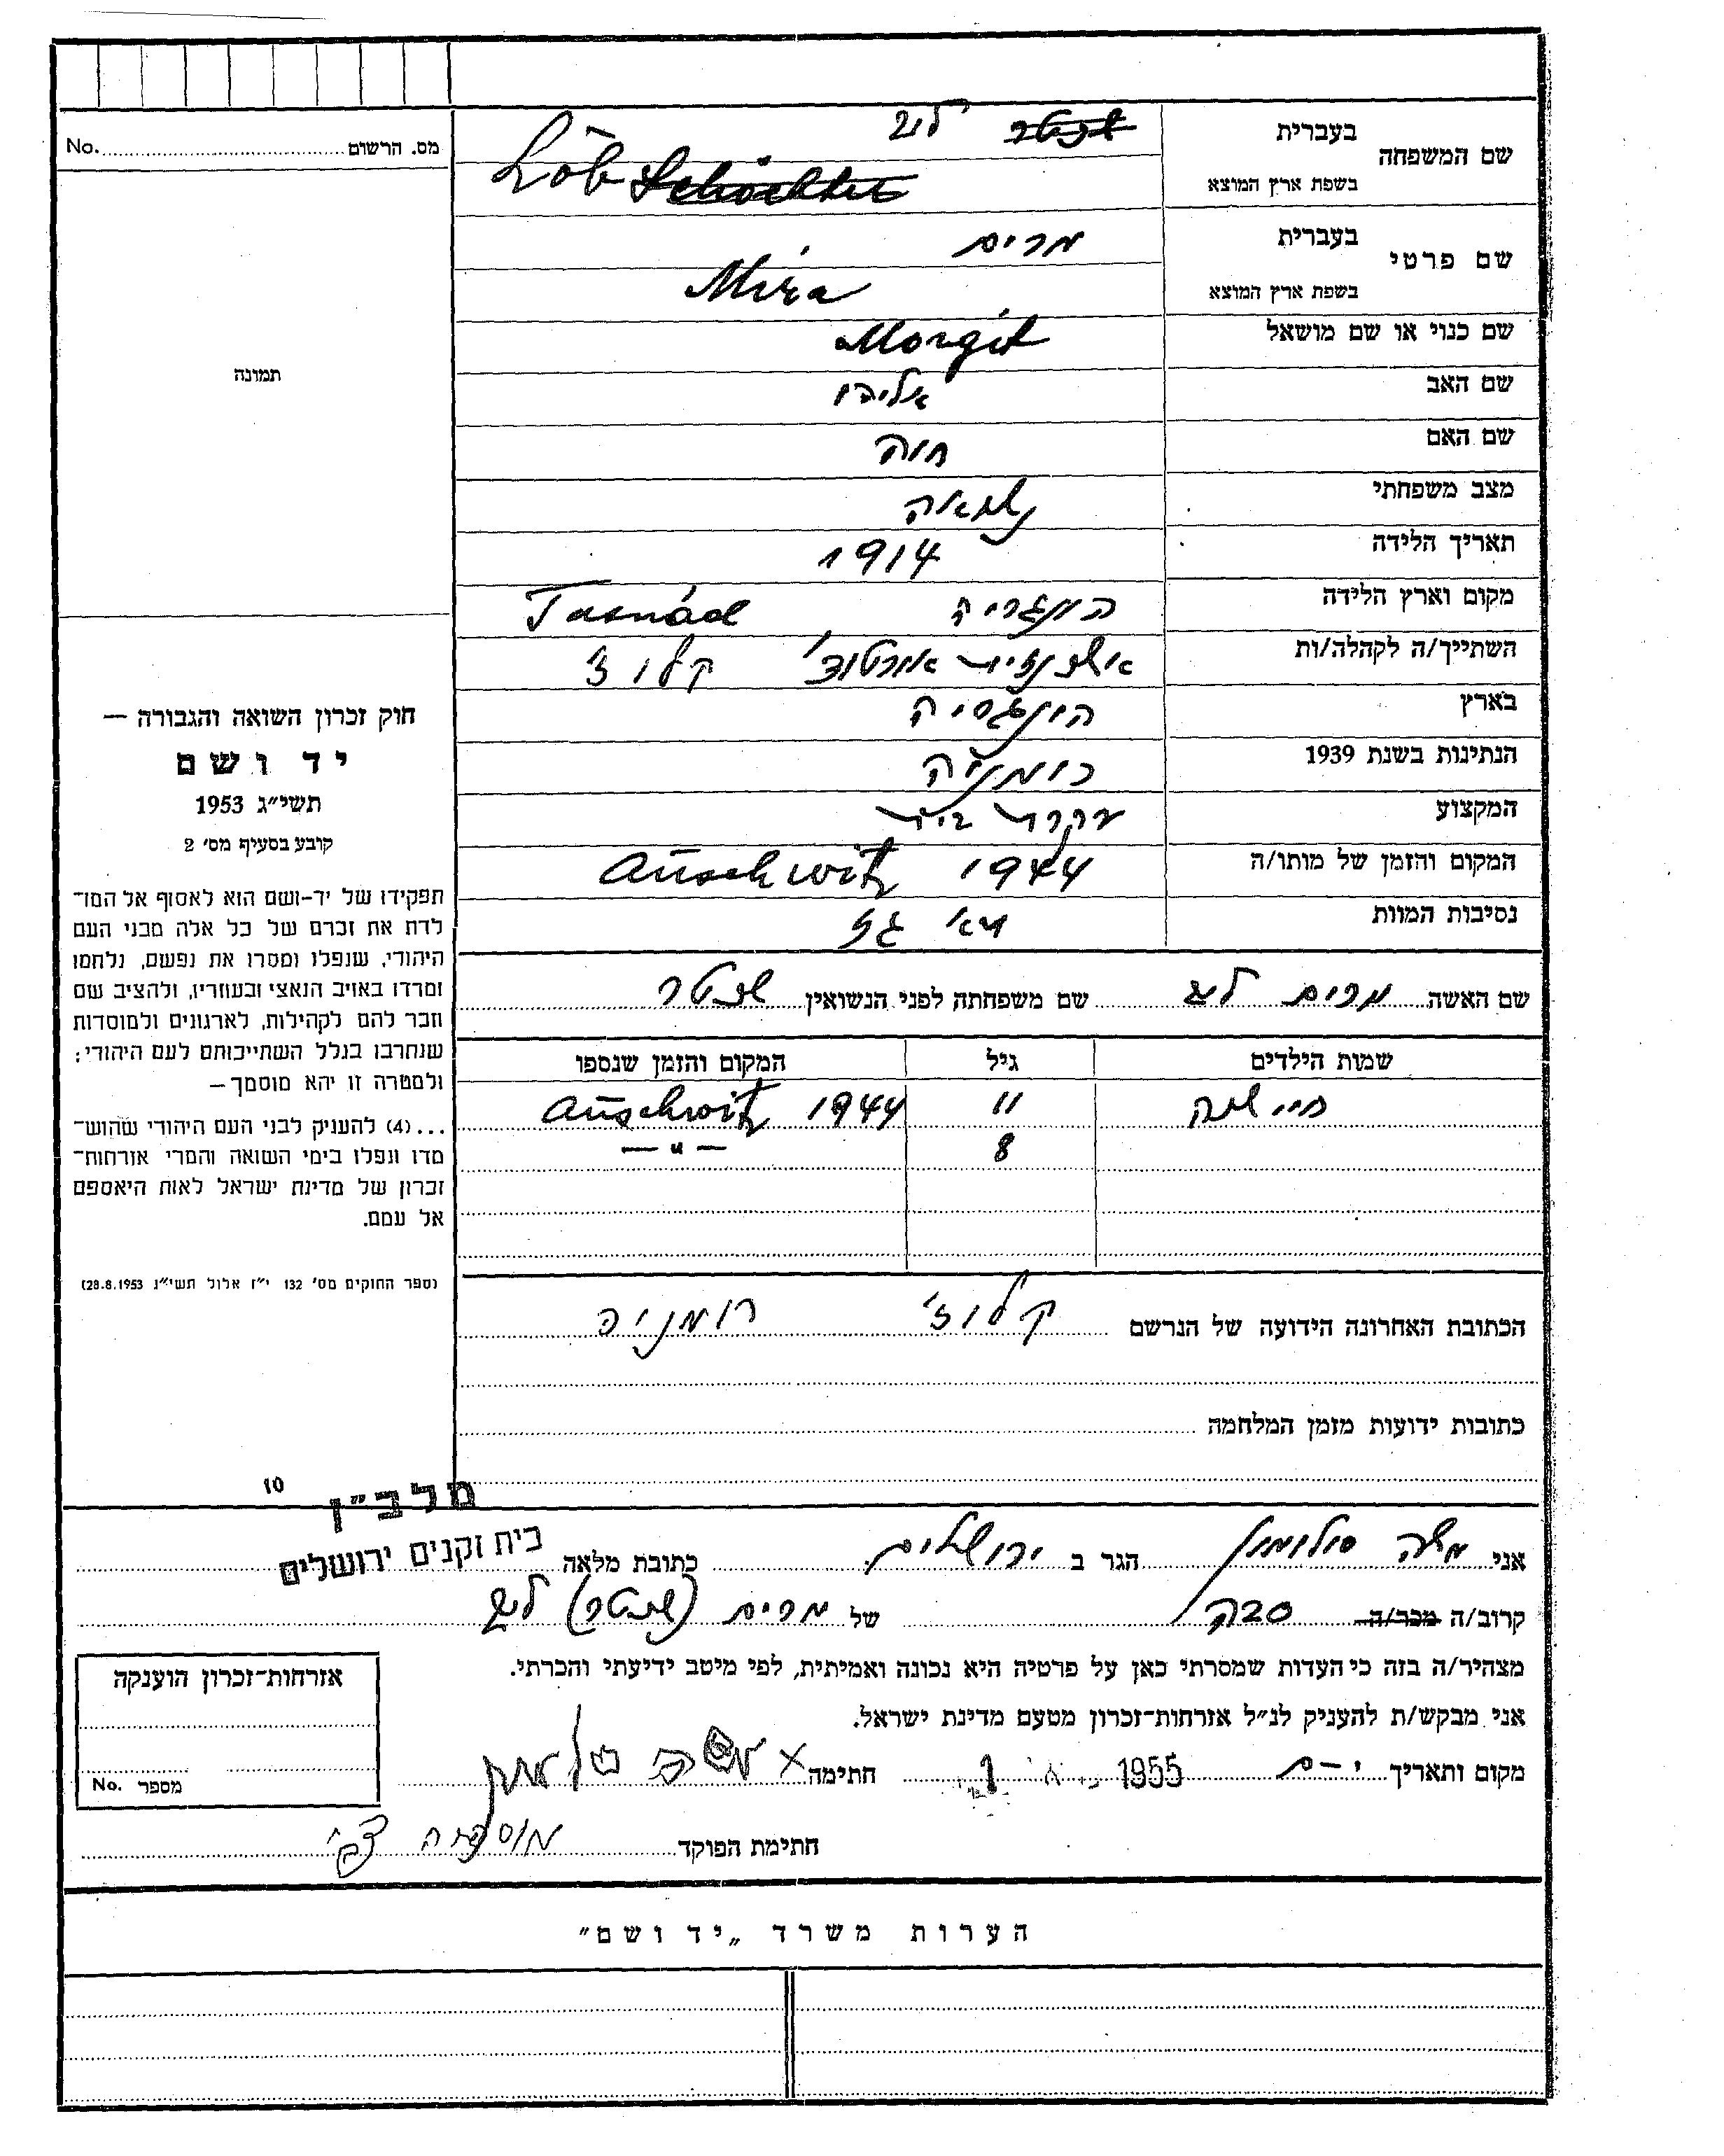 שם המשפחה בעברית שכטר ליב
בשפת ארץ המוצא Löb Schächter
שם פרטי בעברית מרים
בשפת ארץ המוצא Mira
שם כנוי או שם מושאל Margit
שם האב אליהו
שם האם חוה
מצב משפחתי נשואה
תאריך הלידה 1914
מקום וארץ הלידה הונגריה Tasnád
השתייך/ה לקהלה/ות אשכנזית אורטוד' קלוז'
בארץ הונגריה
הנתינות בשנת 1939 רומניה
המקצוע עקרת בית
המקום והזמן של מותו/ה 1944 Auschwitz
נסיבות המוות תא גז
שם האשה מרים ליב שם משפחתה לפני הנשואין שכטר
שמות הילדים גיל המקום והזמן שנספו
חיי שרה 11 1944 Auschwitz
8 — " —
הכתובת האחרונה הידועה של הנרשם קלוז' רומניה
כתובות ידועות מזמן המלחמה
מס. הרשום No.
תמונה
חוק זכרון השואה והגבורה —
יד ושם
תשי״ג 1953
קובע בסעיף מס׳ 2
תפקידו של יד-ושם הוא לאסוף אל המו־
לדת את זכרם של כל אלה מבני העם
היהודי, שנפלו ומסרו את נפשם, נלחמו
ומרדו באויב הנאצי ובעוזריו, ולהציב שם
וזכר להם לקהילות, לארגונים ולמוסדות
שנחרבו בגלל השתייכותם לעם היהודי;
ולמטרה זו יהא מוסמך —
...(4) להעניק לבני העם היהודי שהוש־
מדו ונפלו בימי השואה והמרי אזרחות־
זכרון של מדינת ישראל לאות היאספם
אל עמם.
(ספר החוקים מס׳ 132 י״ז אלול תשי״ג 28.8.1953)
10
מלב״ן
בית זקנים ירושלים
אני משה סולומון הגר ב ירושלים כתובת מלאה
קרוב/ה מכר/ה סבה של מרים (שכטר) ליב
מצהיר/ה בזה כי העדות שמסרתי כאן על פרטיה היא נכונה ואמיתית, לפי מיטב ידיעתי והכרתי.
אני מבקש/ת להעניק לנ״ל אזרחות־זכרון מטעם מדינת ישראל.
מקום ותאריך י-ם 1955 חתימה x משה סולומון
חתימת הפוקד
אזרחות־זכרון הוענקה
מספר No.
הערות משרד „יד ושם"